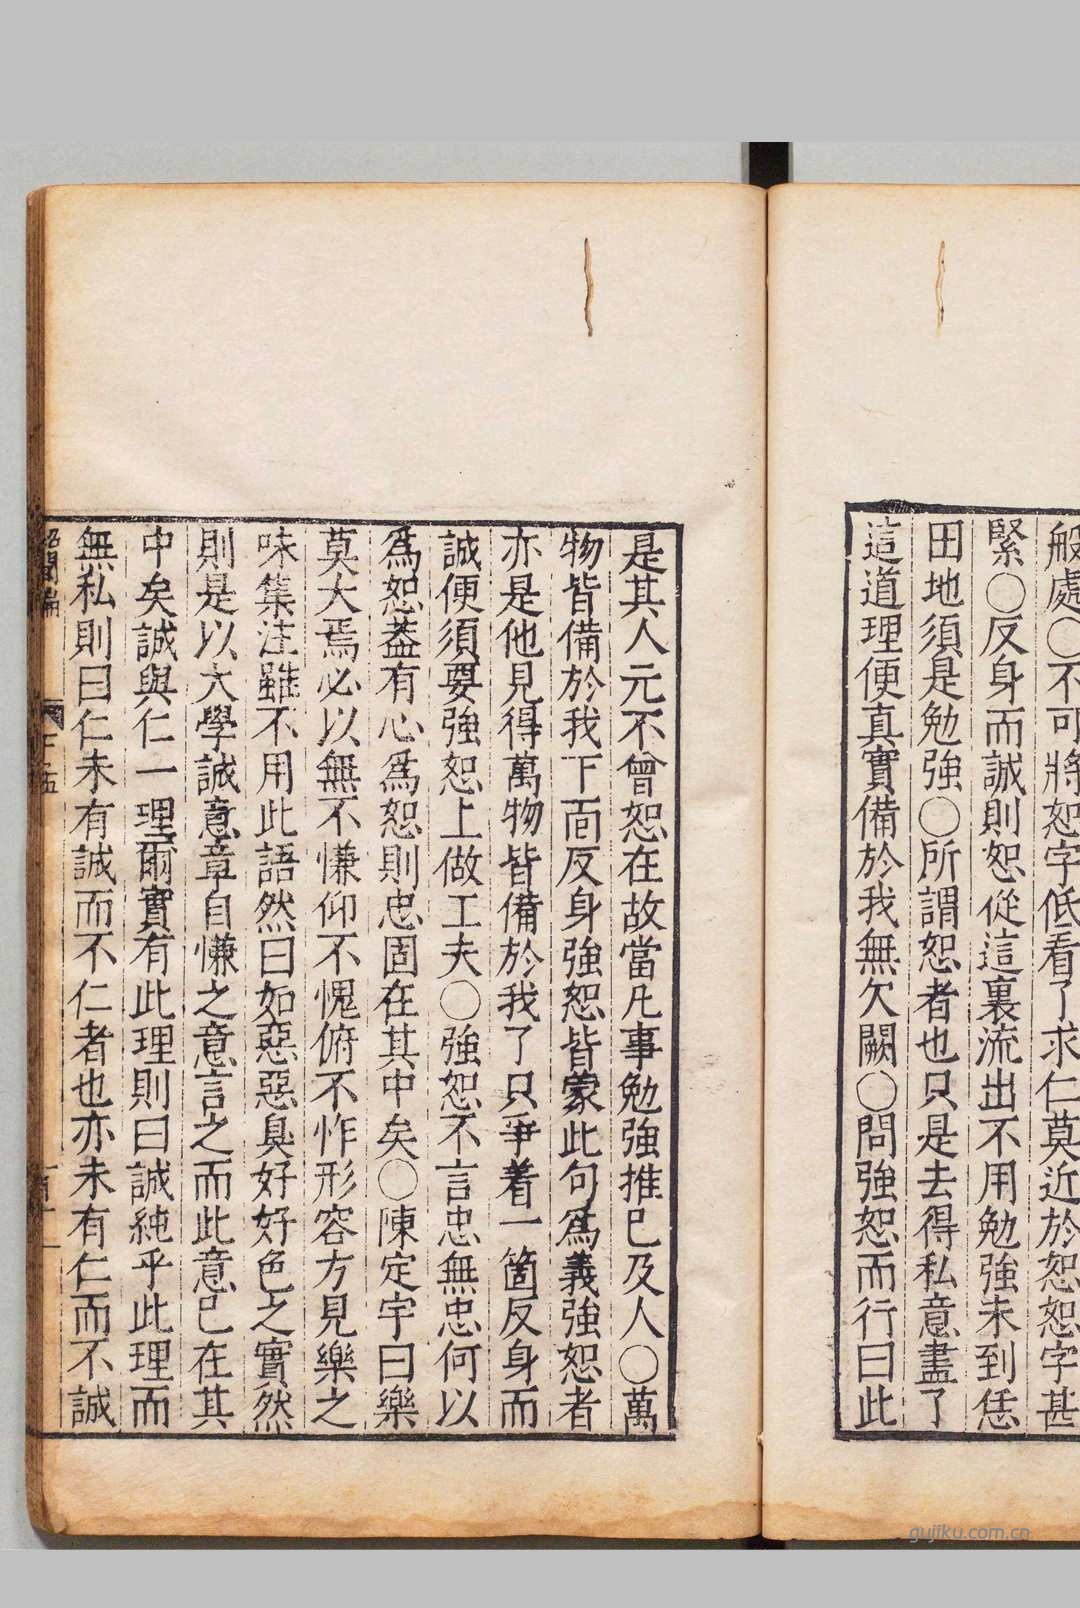 般處○不可將恕字低看了求仁莫近於恕恕字甚
緊○反身而誠則恕從這裏流出不用勉強未到恁
田地須是勉強○所謂恕者也只是去得私意盡了
這道理便真實備於我無欠闕○問強恕而行曰此
是其人元不曾恕在故當凡事勉強推已及人○萬
物皆備於我下面反身強恕皆蒙此句爲義強恕者
亦是他見得萬物皆備於我了只爭着一箇反身而
誠便須要強恕上做工夫○強恕不言忠無忠何以
爲恕葢有心爲恕則忠固在其中矣○陳定宇曰樂
莫大焉必以無不慊仰不愧俯不怍形容方見樂之
味集注雖不用此語然曰如惡惡臭好好色之實然
則是以大學誠意章自慊之意言之而此意已在其
中矣誠與仁一理爾實有此理則曰誠純乎此理而
無私則曰仁未有誠而不仁者也亦未有仁而不誠
gujiku.com.cn